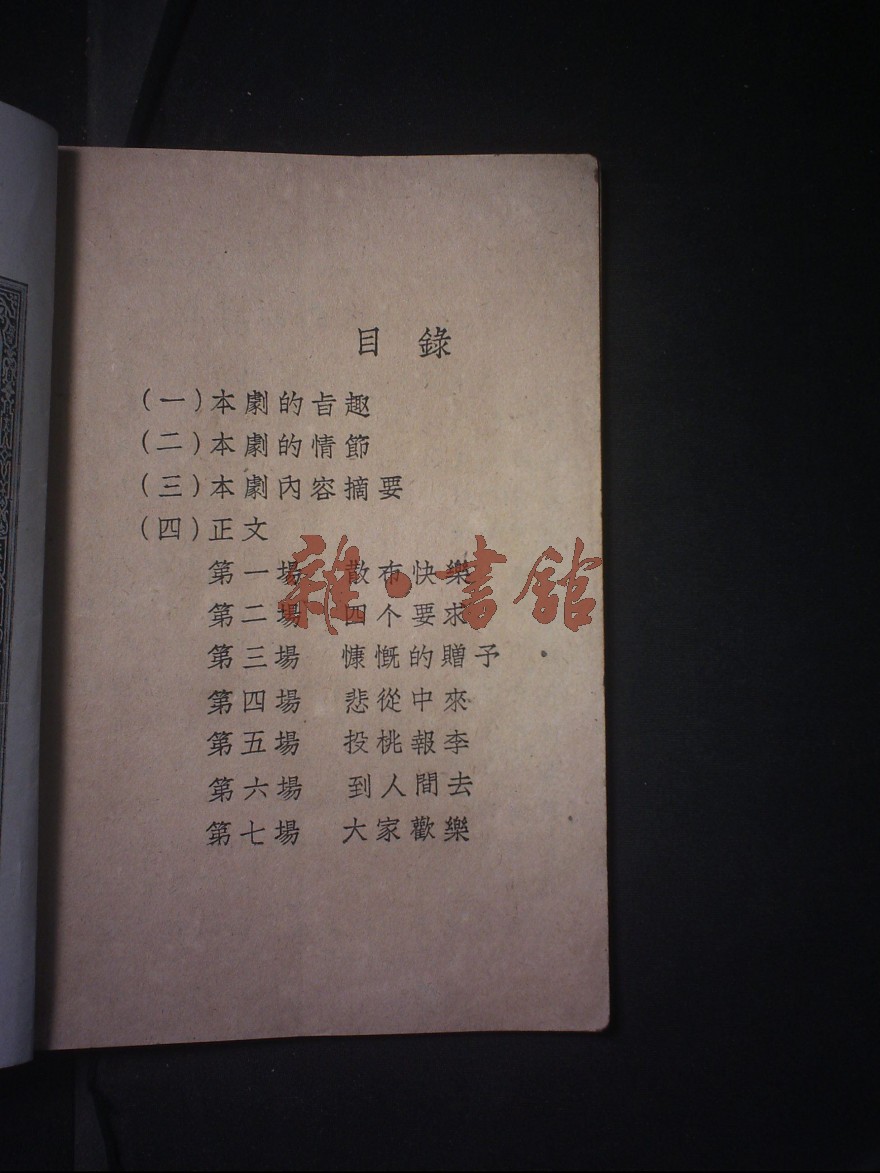 目錄
(一)本劇的旨趣
(二)本劇的情節
(三)本劇內容摘要
(四)正文
第一場 散布快樂
第二場 四个要求
第三場 慷慨的贈予
第四場 悲從中來
第五場 投桃報李
第六場 到人間去
第七場 大家歡樂
雜·書館